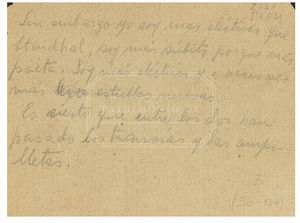 Sin embargo yo soy mas electrico que
Stendhal, soy mas subito porque más
poeta. Soy más electrico y a ocasiones
mas estrellas nuevas.
Es cierto que entre los dos han
pasado los tranvias y las ampo-
lletas.
3